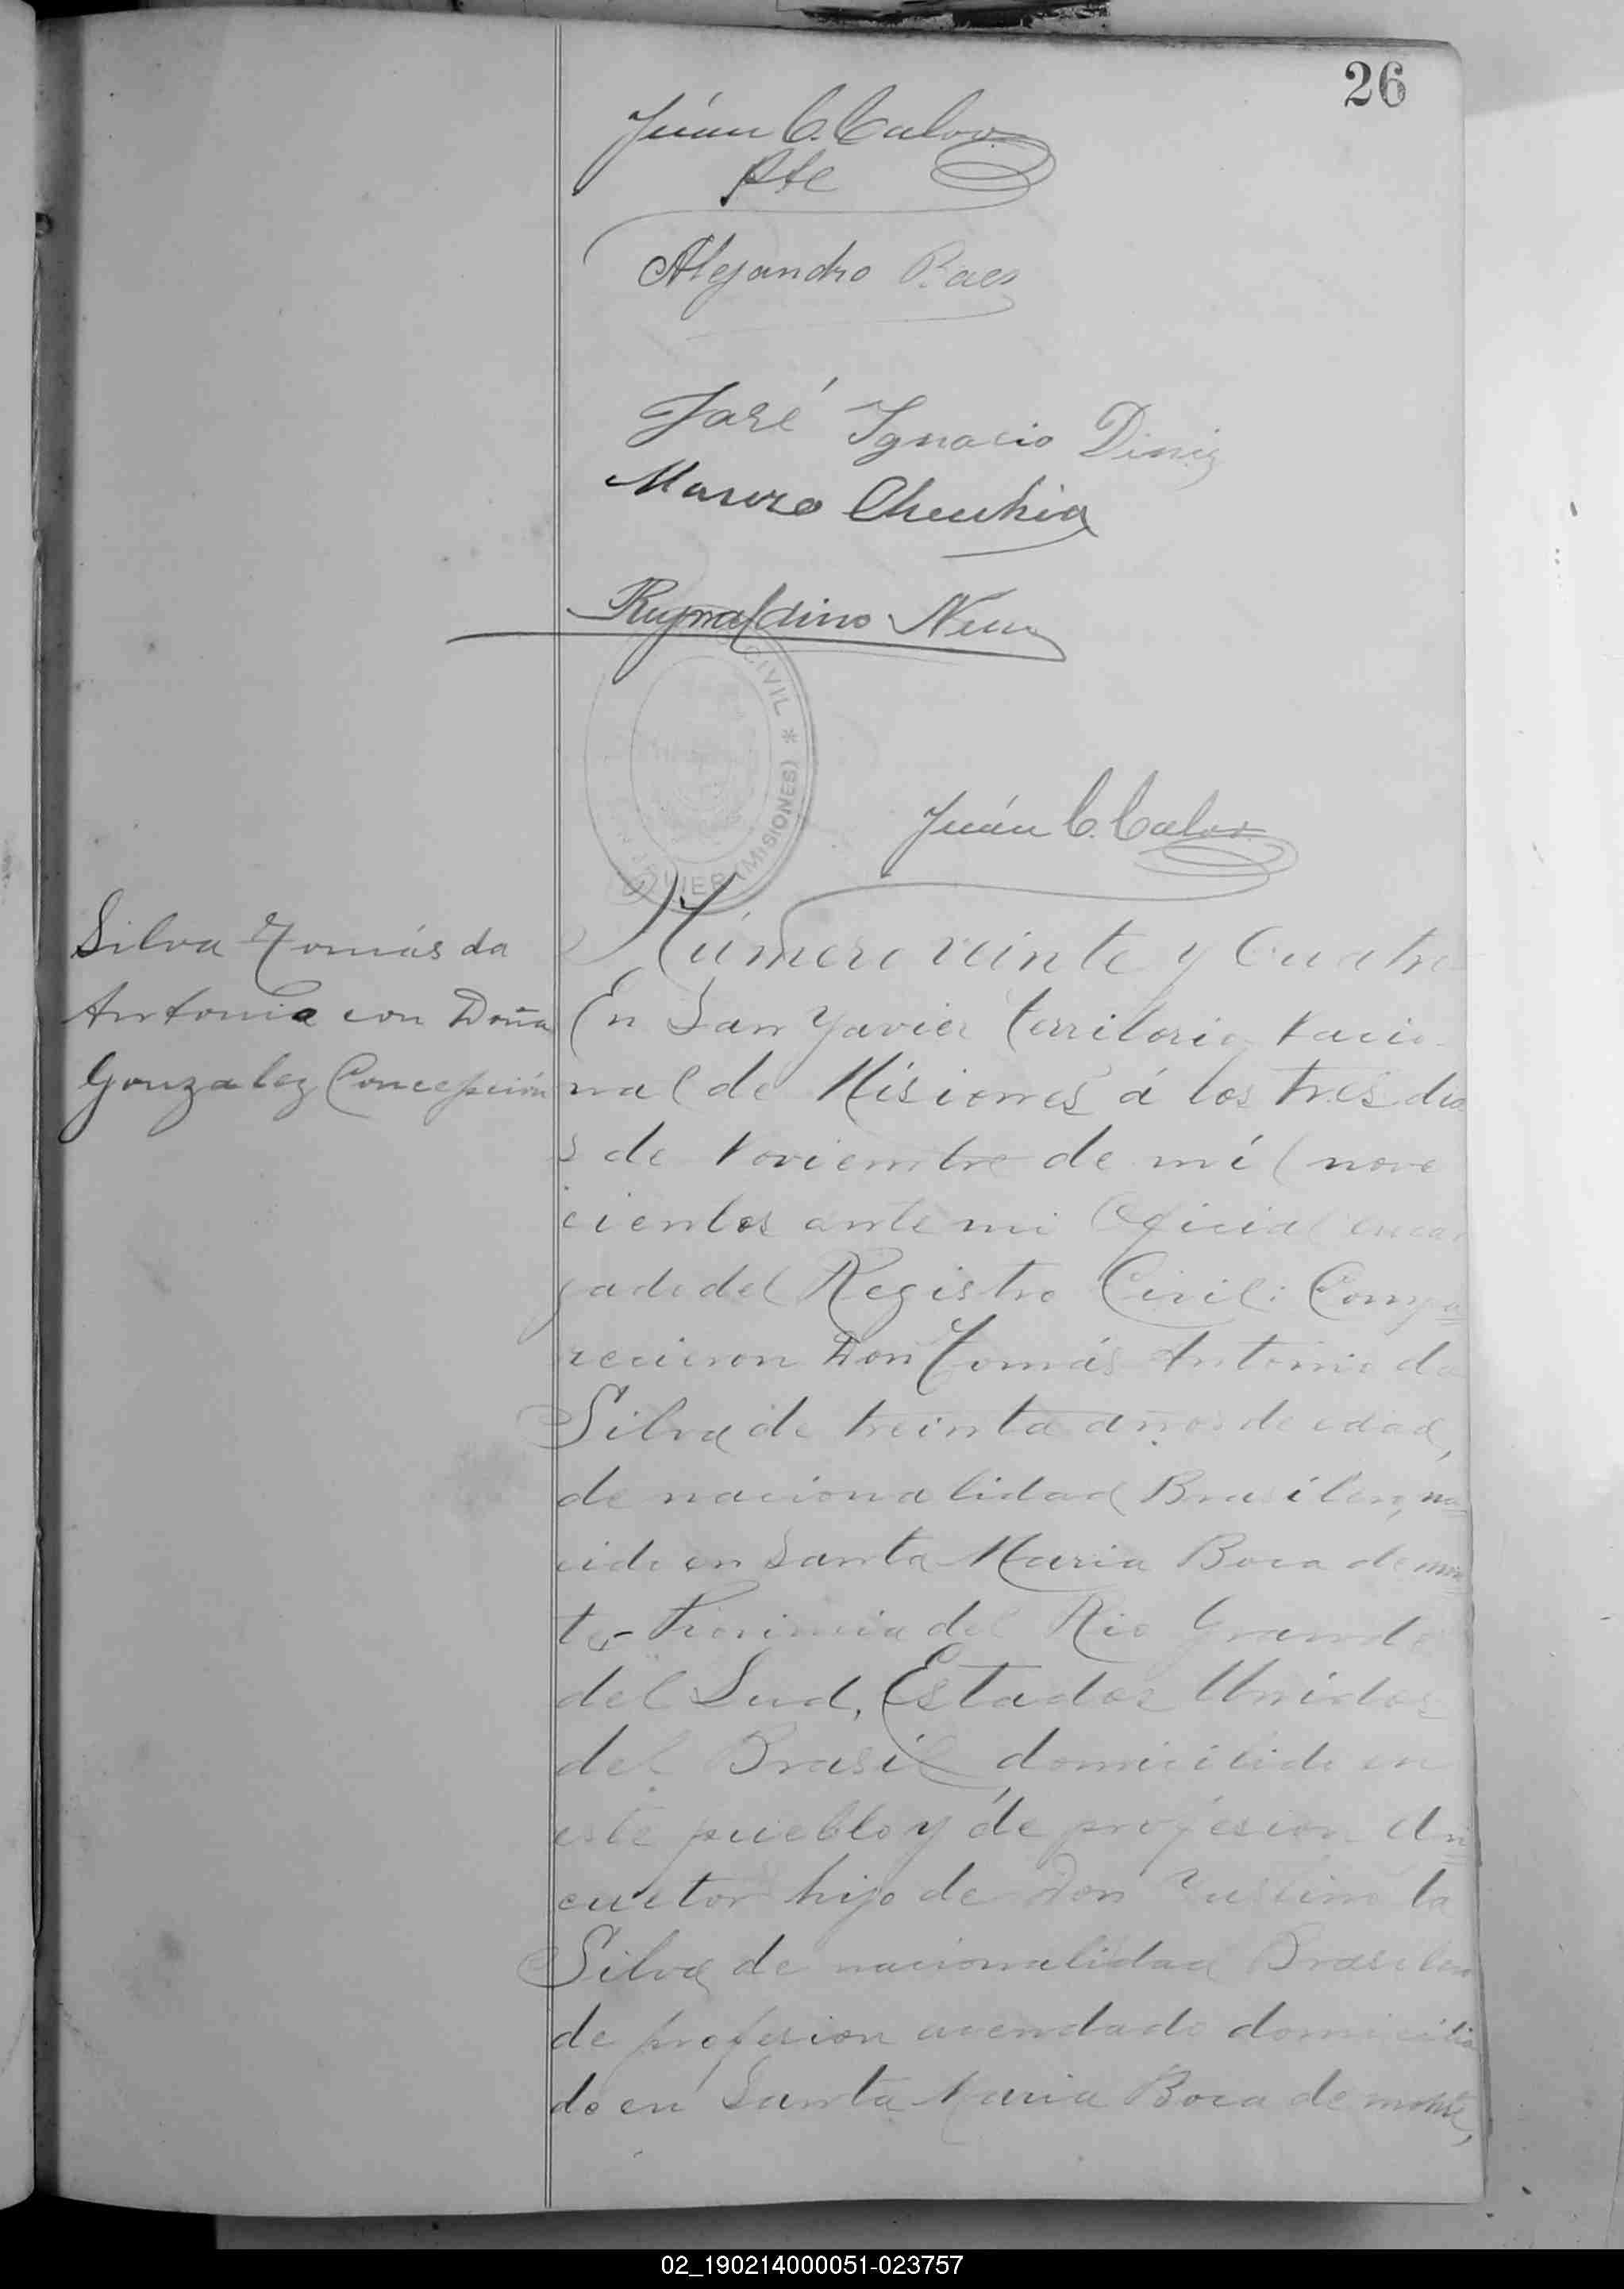 26
Juán C. Calvo
Pte
Alejandro Paes
José Ignacio Diniz
Mauro
Reynaldino
CIVIL * (MISIONES)
Juán C. Calvo
Silva Tomás da
Antonio con Doña
Gonzalez Concepción
Número veinte y Cuatro
En San Yavier territorio Nacio
nal de Misiones á los tres dia
s de Noviembre de mil nove
cientos ante mi Oficial encar
gado del Registro Civil: Compa
recieron Don Tomás Antonio da
Silva de treinta años de edad,
de nacionalidad Brasilero, na
cido en Santa Maria Boca de mon
te Provincia del Rio Grande
del Sud, Estados Unidos
del Brasil, domicilido en
este pueblo y de profesion
cultor hijo de Don la
Silva de nacionalidad Brasilero
de profesion acendado domicilia
do en Santa Maria Boca de monte,
02_190214000051-023757